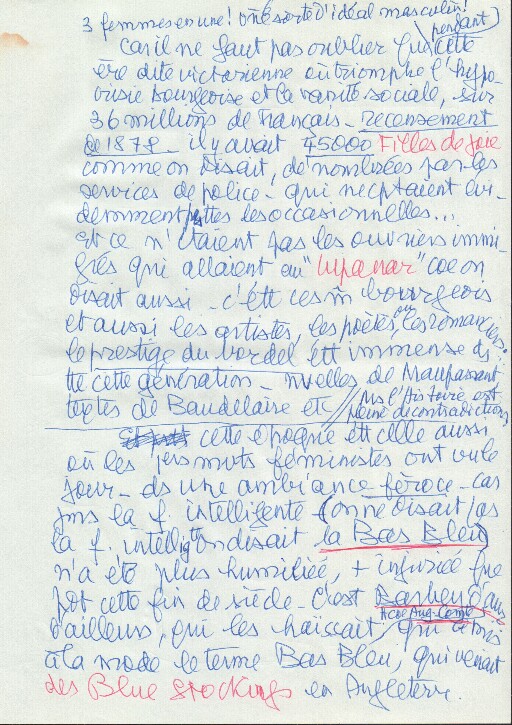 3 femmes en une! Une sorte d'idéal masculin!
Car il ne faut pas oublier que pendant cette
ère dite victorienne où triomphe l'hypo
crisie bourgeoise et la vanité sociale, sur
36 millions de français - recensement
de 1878 - il y avait 45000 Filles de joie
comme on disait, dénombrées par les
services de police - qui ne cptaient évi-
demment pas ttes les occasionnelles...
et ce n'étaient pas les ouvriers immi-
grés qui allaient au "lupanar" coe on
disait aussi - c'étt ces m̂ bourgeois
et aussi les artistes, les poètes, ou les romanciers.
le prestige du bordel étt immense ds
tte cette génération - nvelles de Maupassant
textes de Baudelaire etc // Ms l'histoire est
pleine de contradictions
cette époque étt celle aussi
où les 1ers mvts féministes ont vu le
jour - ds une ambiance féroce - car
jms la f. intelligente (on ne disait pas
la f. intellig^te on disait la Bas Bleu)
n'a été plus humiliée, + injuriée que
pdt cette fin de siècle - C'est Barbey d'Aur
d'ailleurs, qui les haïssait, qui a mis
à la mode le terme Bas Bleu, qui venait
des Blue Stockings en Angleterre.